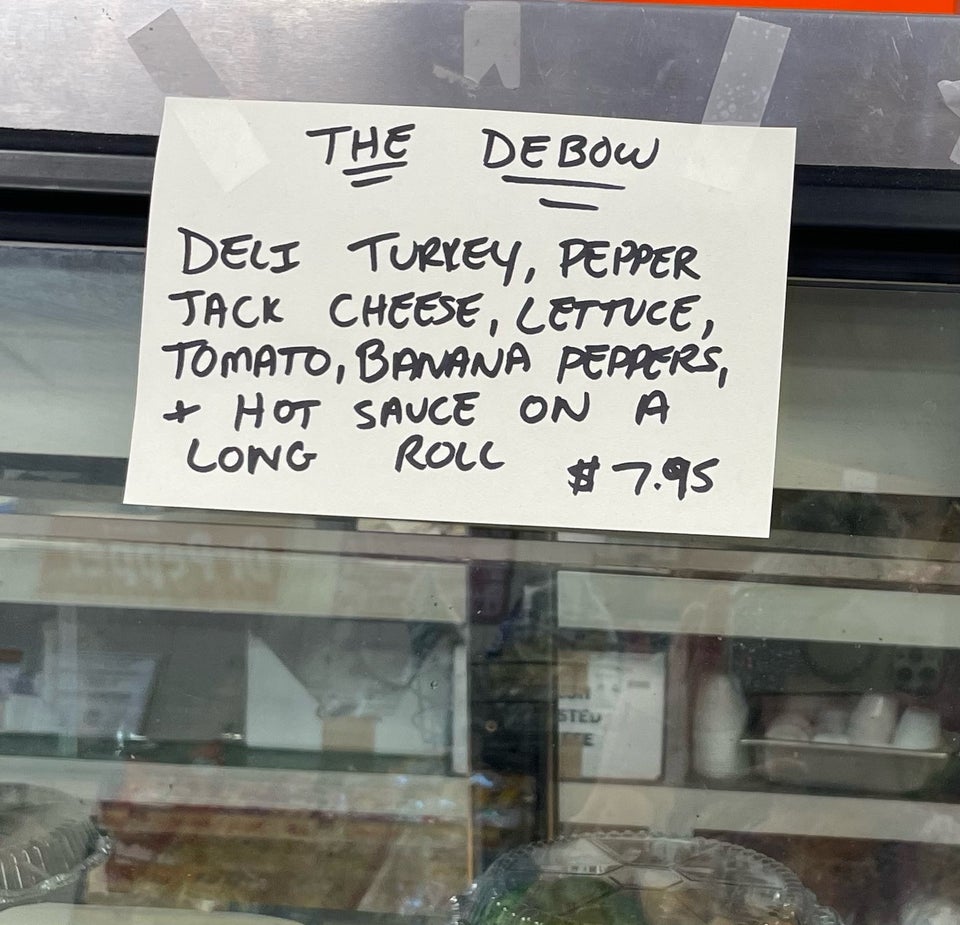 THE DEBOW
DELI TURKEY, PEPPER
JACK CHEESE, LETTUCE,
TOMATO, BANANA PEPPERS,
+ HOT SAUCE ON A
LONG ROLL $7.95